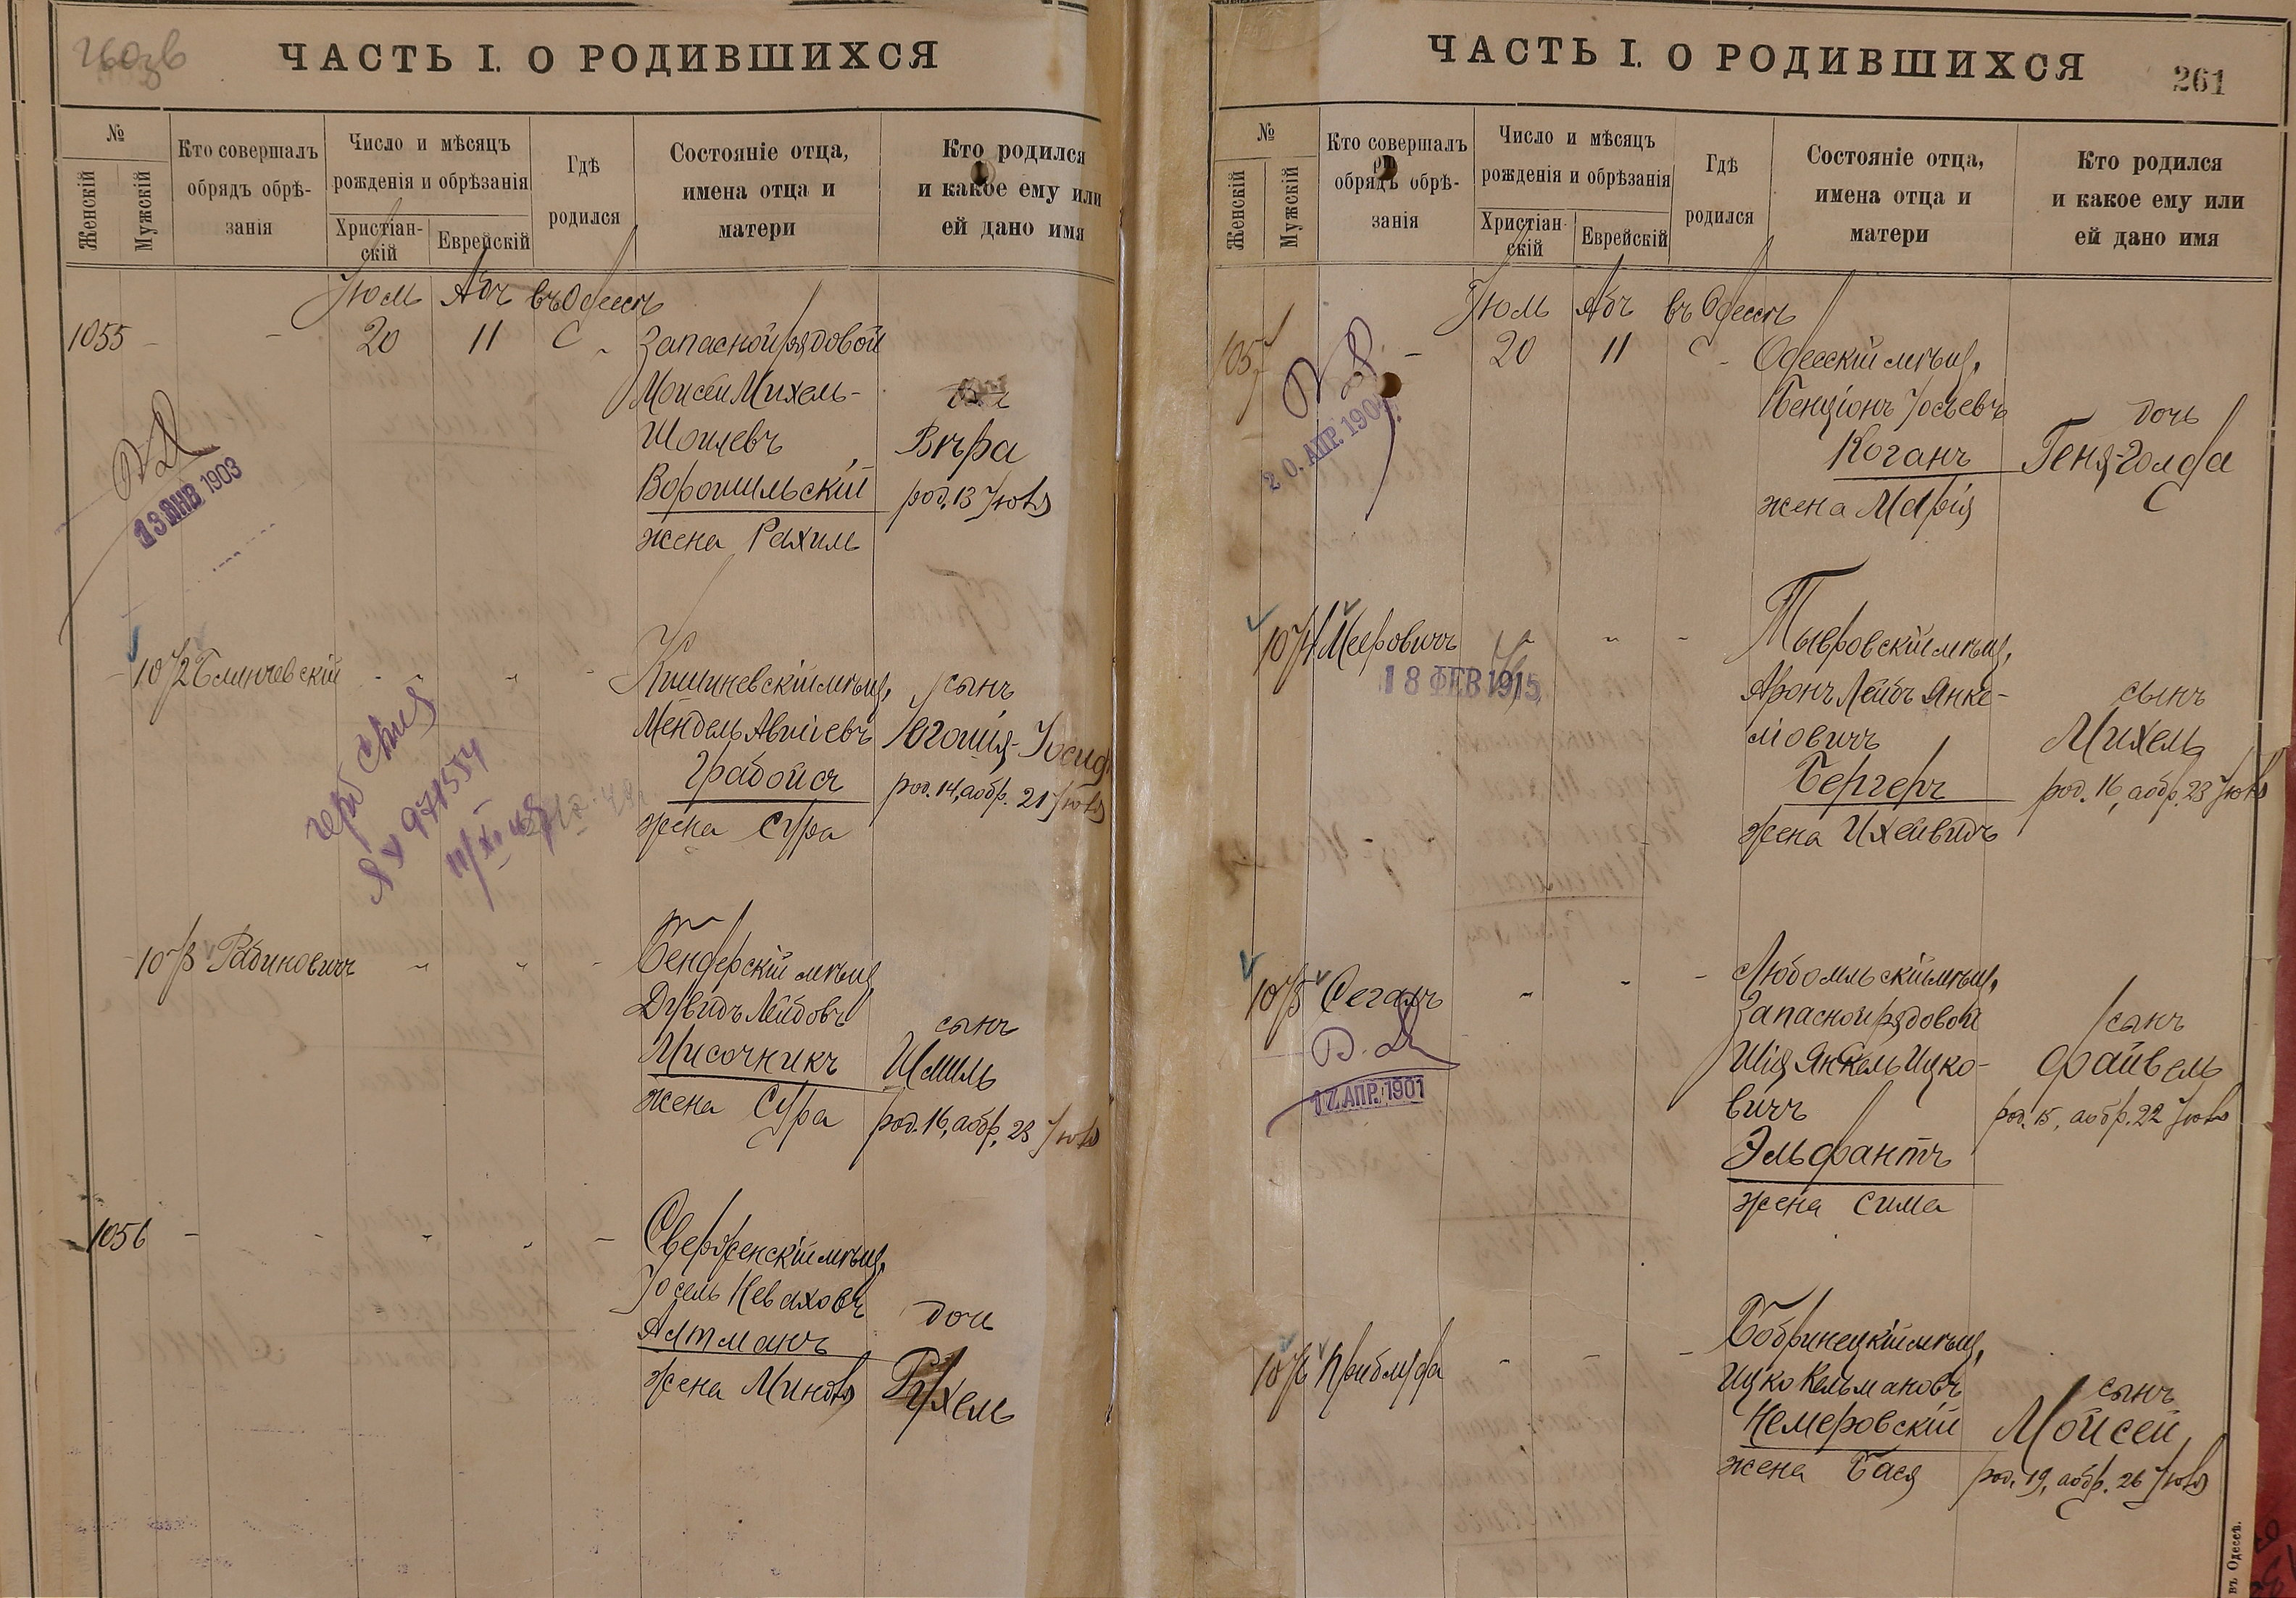 ЧАСТЬ I. О РОДИВШИХСЯ
№
Женскій
Мужскій
Кто совершалъ
обрядъ обрѣ-
занія
Число и мѣсяцъ
рожденія и обрѣзанія
Христіан-
скій
Еврейскій
Гдѣ
родился
Состояніе отца,
имена отца и
матери
Кто родился
и какое ему или
ей дано имя
Іюль Абъ въ Одессѣ
1055 - - 20 11 Запасной рядовой
Моисей Михель-
Шоилевъ Вѣра
Ворошильскій род. 13 Іюля
жена Рахиль
13 ЯНВ 1903
1072 Блинчевскій Кишиневскій мѣщ. сынъ
Мендель Авшіевъ Іегошія-Іосифъ
Грабойсъ род. 14, а обр. 21 Іюля
жена Сура
1073 Рабиновичъ Бендерскій мѣщ.
Дувидъ Лейбовъ сынъ
Мисочникъ Шмиль
жена Сура род. 16, а обр. 23 Іюля
1056 - Сверженскій мѣщ.
Іосель Неваховъ дочь
Алтманъ
жена Миндля Рухель
ЧАСТЬ I. О РОДИВШИХСЯ
261
№
Женскій
Мужскій
Кто совершалъ
обрядъ обрѣ-
занія
Число и мѣсяцъ
рожденія и обрѣзанія
Христіан-
скій
Еврейскій
Гдѣ
родился
Состояніе отца,
имена отца и
матери
Кто родился
и какое ему или
ей дано имя
Іюль Абъ въ Одессѣ
1057 - 20 11 Одесскій мѣщ.
Бенціонъ Іосьевъ дочь
Коганъ Геня-Голда
жена Марія
20. АПР. 190
1074 Мееровичъ Тывровскій мѣщ.
18 ФЕВ 1915
Аронъ Лейбъ Янке- сынъ
ліовичъ Михель
Бергеръ род. 16, а обр. 23 Іюля
жена Ихейвидъ
1075 Сегалъ Любомльскій мѣщ.
Запасной рядовой сынъ
Шія Янкель Ицко- Файвель
вичъ род. 15, а обр. 22 Іюля
Эльфантъ
жена Сима
17. АПР. 1901
1076 Приблуда Бобринецкій мѣщ.
Ицко Кельмановъ сынъ
Немеровскій Мойсей
жена Бася род. 19, а обр. 26 Іюля
въ Одессѣ.